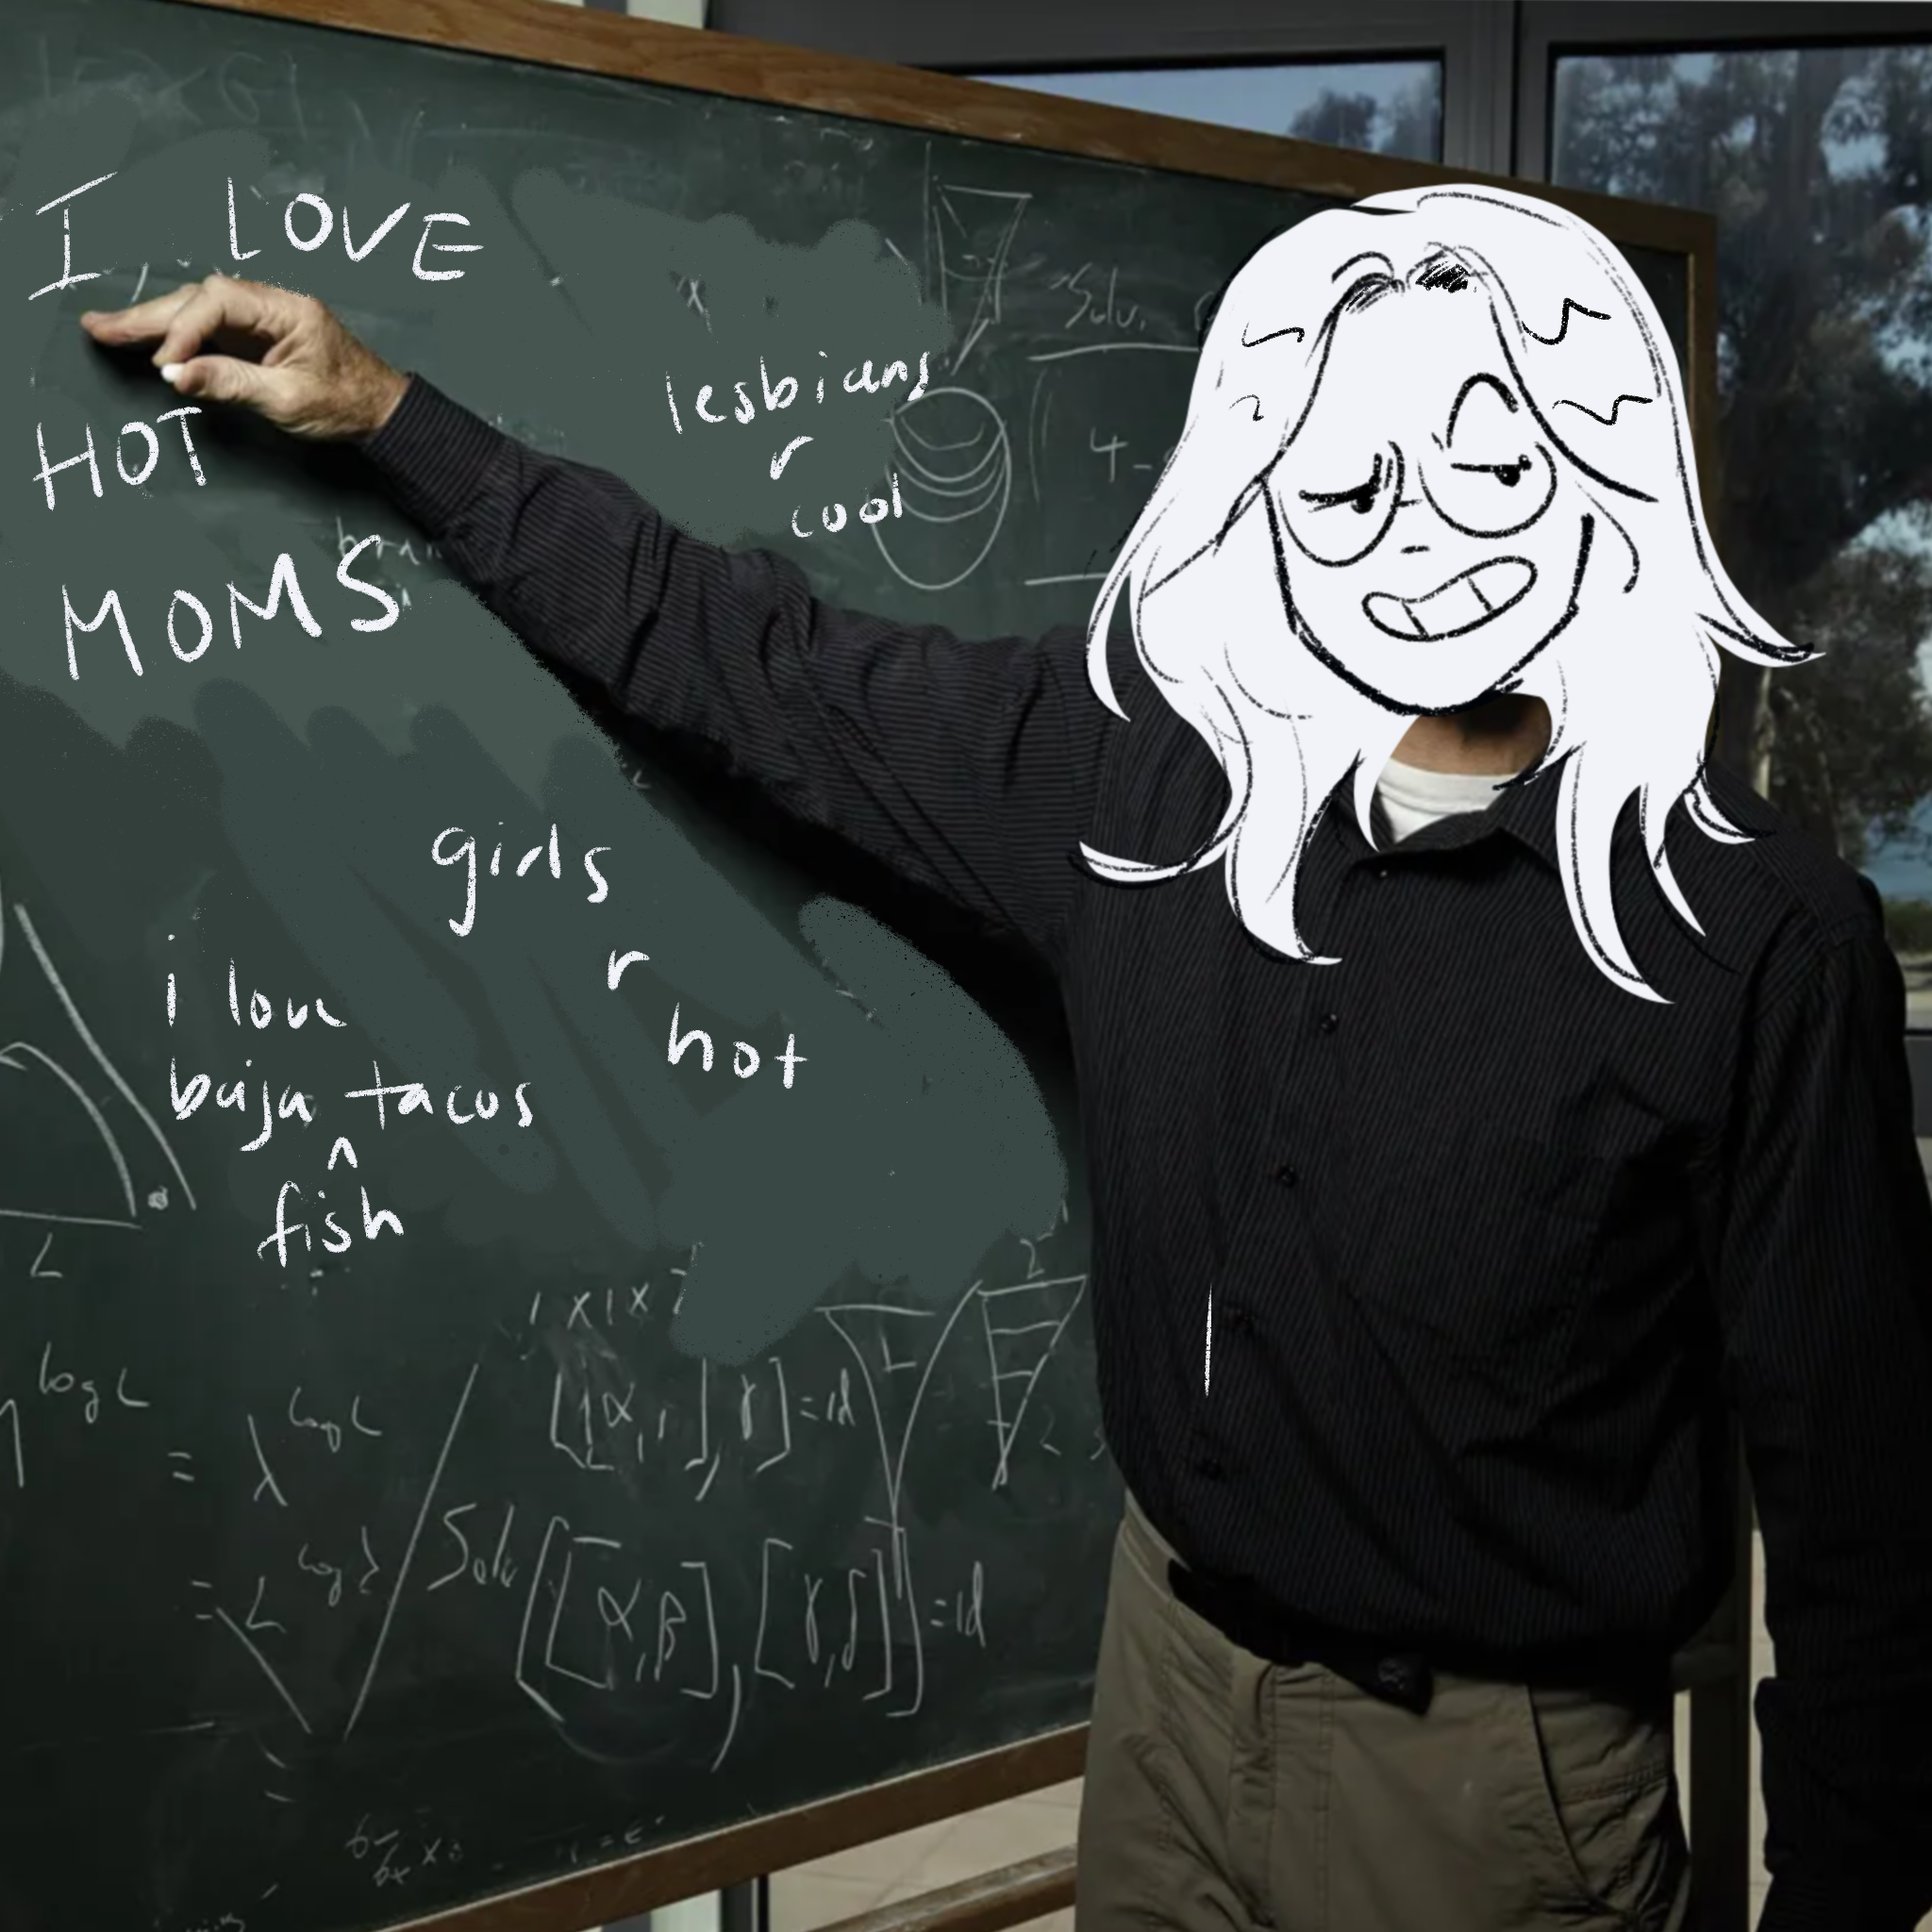 I LOVE
HOT
MOMS
lesbians
r
cool
girls
r
hot
i love
baja tacos
^
fish
Solv.
4-
L
log L
= λ log L
= L log λ
[[α, ], γ] = id
Solv ([α,β], [γ,δ]) = id
2